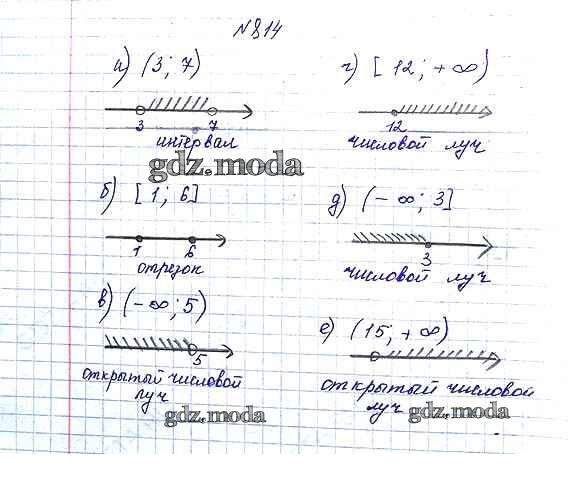 №814
а) (3; 7)
3 7
интервал
gdz.moda
б) [1; 6]
1 6
отрезок
в) (-∞; 5)
5
открытый числовой
луч
gdz.moda
г) [12; +∞)
12
числовой луч
д) (-∞; 3]
3
числовой луч
е) (15; +∞)
открытый числовой
луч
gdz.moda